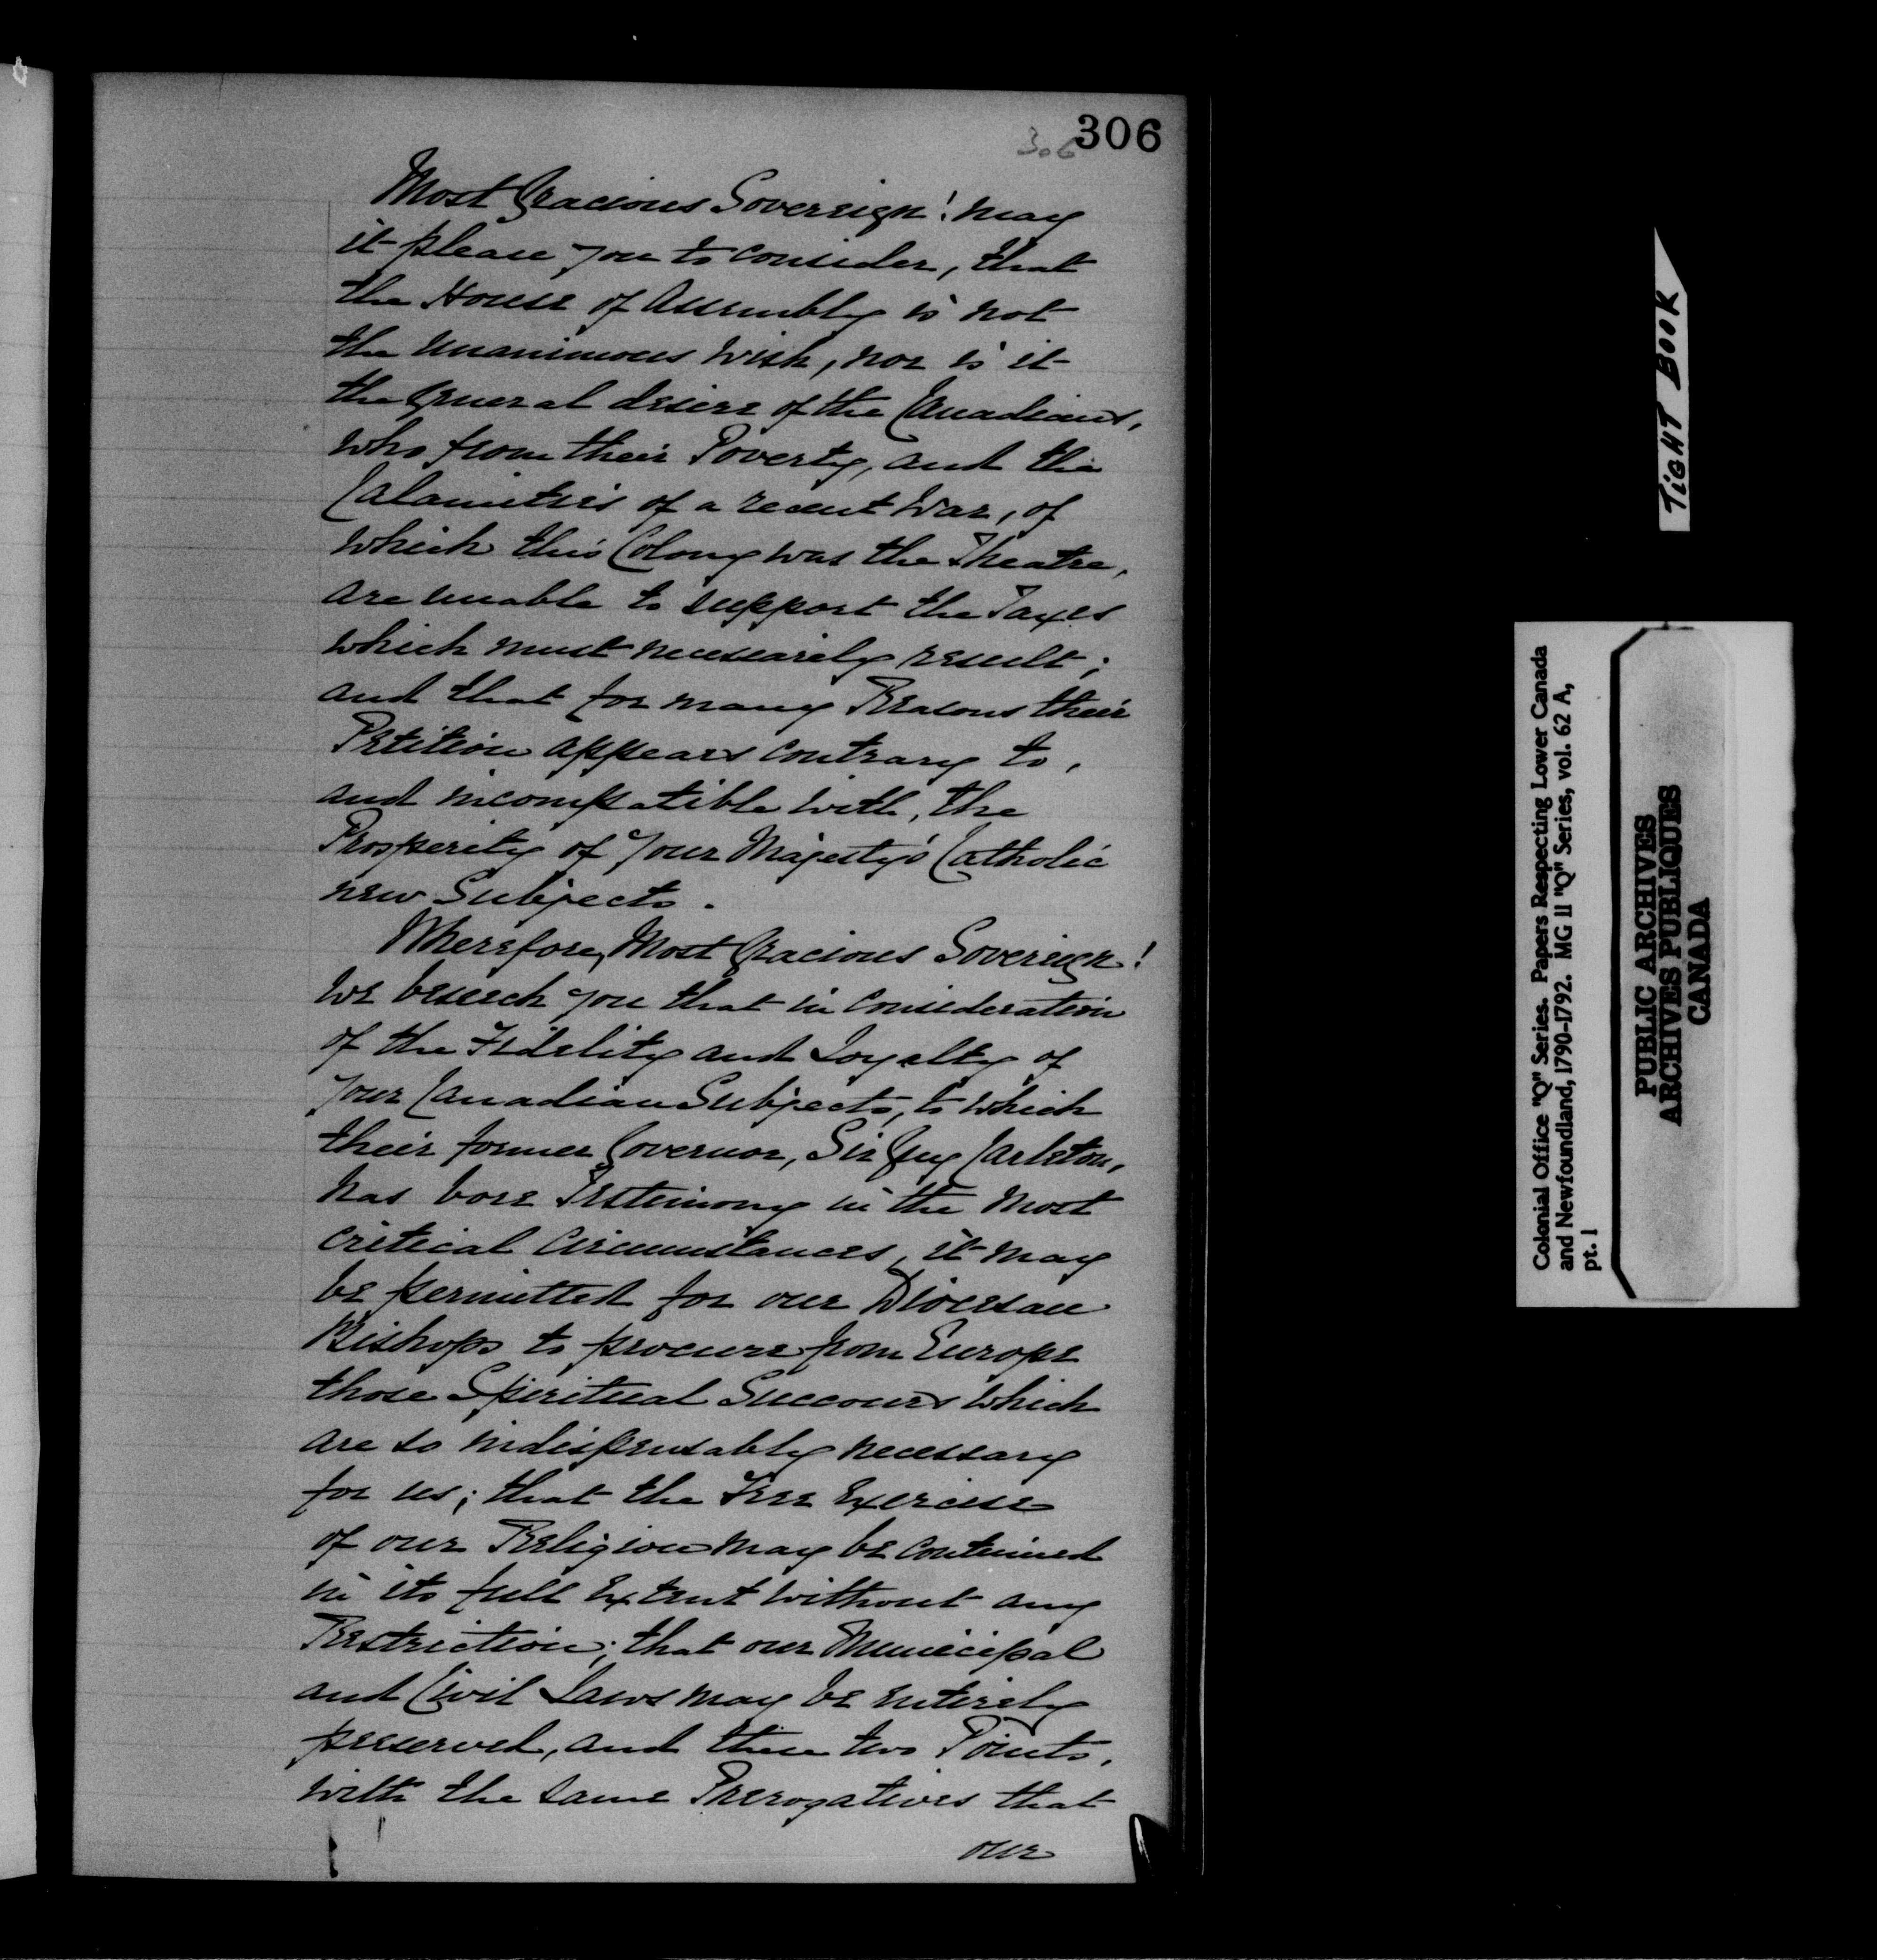 306
306
Most Gracious Sovereign! may
it please you to consider, that
the House of Assembly is not
the unanimous wish, nor is it
the general desire of the Canadians,
who from their Poverty, and the
Calamities of a recent War, of
which this Colony was the Theatre,
are unable to support the Taxes
which must necessarily result;
and that for many Reasons their
Petition appears contrary to,
and incompatible with, the
Prosperity of your Majesty's Catholic
new Subjects.
Wherefore, Most Gracious Sovereign!
we beseech you that in consideration
of the Fidelity and Loyalty of
your Canadian Subjects, to which
their former Governor, Sir Guy Carleton,
has bore Testimony in the most
critical Circumstances, it may
be permitted for our Diocesan
Bishops to procure from Europe
those Spiritual Succours which
are so indispensably necessary
for us; that the Free Exercise
of our Religion may be continued
in its full Extent without any
Restriction; that our Municipal
and Civil Laws may be entirely
preserved, and these two Points,
with the same Prerogatives that
our
TIGHT BOOK
Colonial Office "Q" Series. Papers Respecting Lower Canada
and Newfoundland, 1790-1792. MG 11 "Q" Series, vol. 62 A,
pt. 1
PUBLIC ARCHIVES
ARCHIVES PUBLIQUES
CANADA